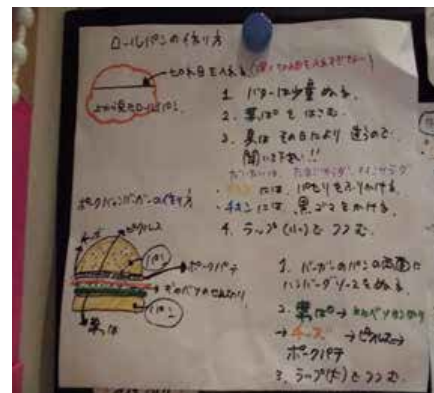 ロールパンの作り方
切れ目を入れる
上から見たロールパン
1. バターは少量ぬる。
2. 葉っぱをはさむ。
3. 具はその日により違うので
聞いて下さい!!
には、パセリをふりかける。
・チキンには、黒ごまをかける。
4. ラップ(小)でつつむ。
ポークハンバーガーの作り方
チーズ
ピクルス
パン
ポークパテ
キャベツのせんぎり
パン
葉っぱ
1. バーガーのパンの両面に
ハンバーグソースをぬる。
2. 葉っぱ→キャベツせんぎり
→チーズ→ピクルス→
ポークパテ
3. ラップ(大)でつつむ